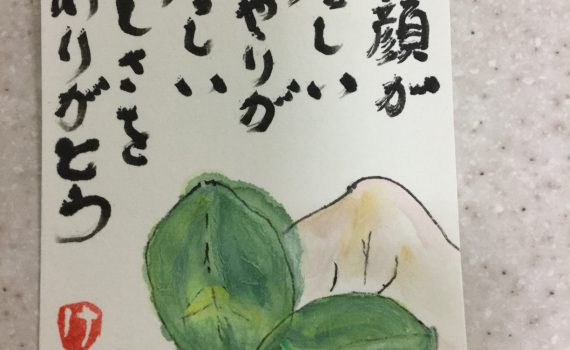 顔が
しい
やりが
しい
しさを
ありがとう
け